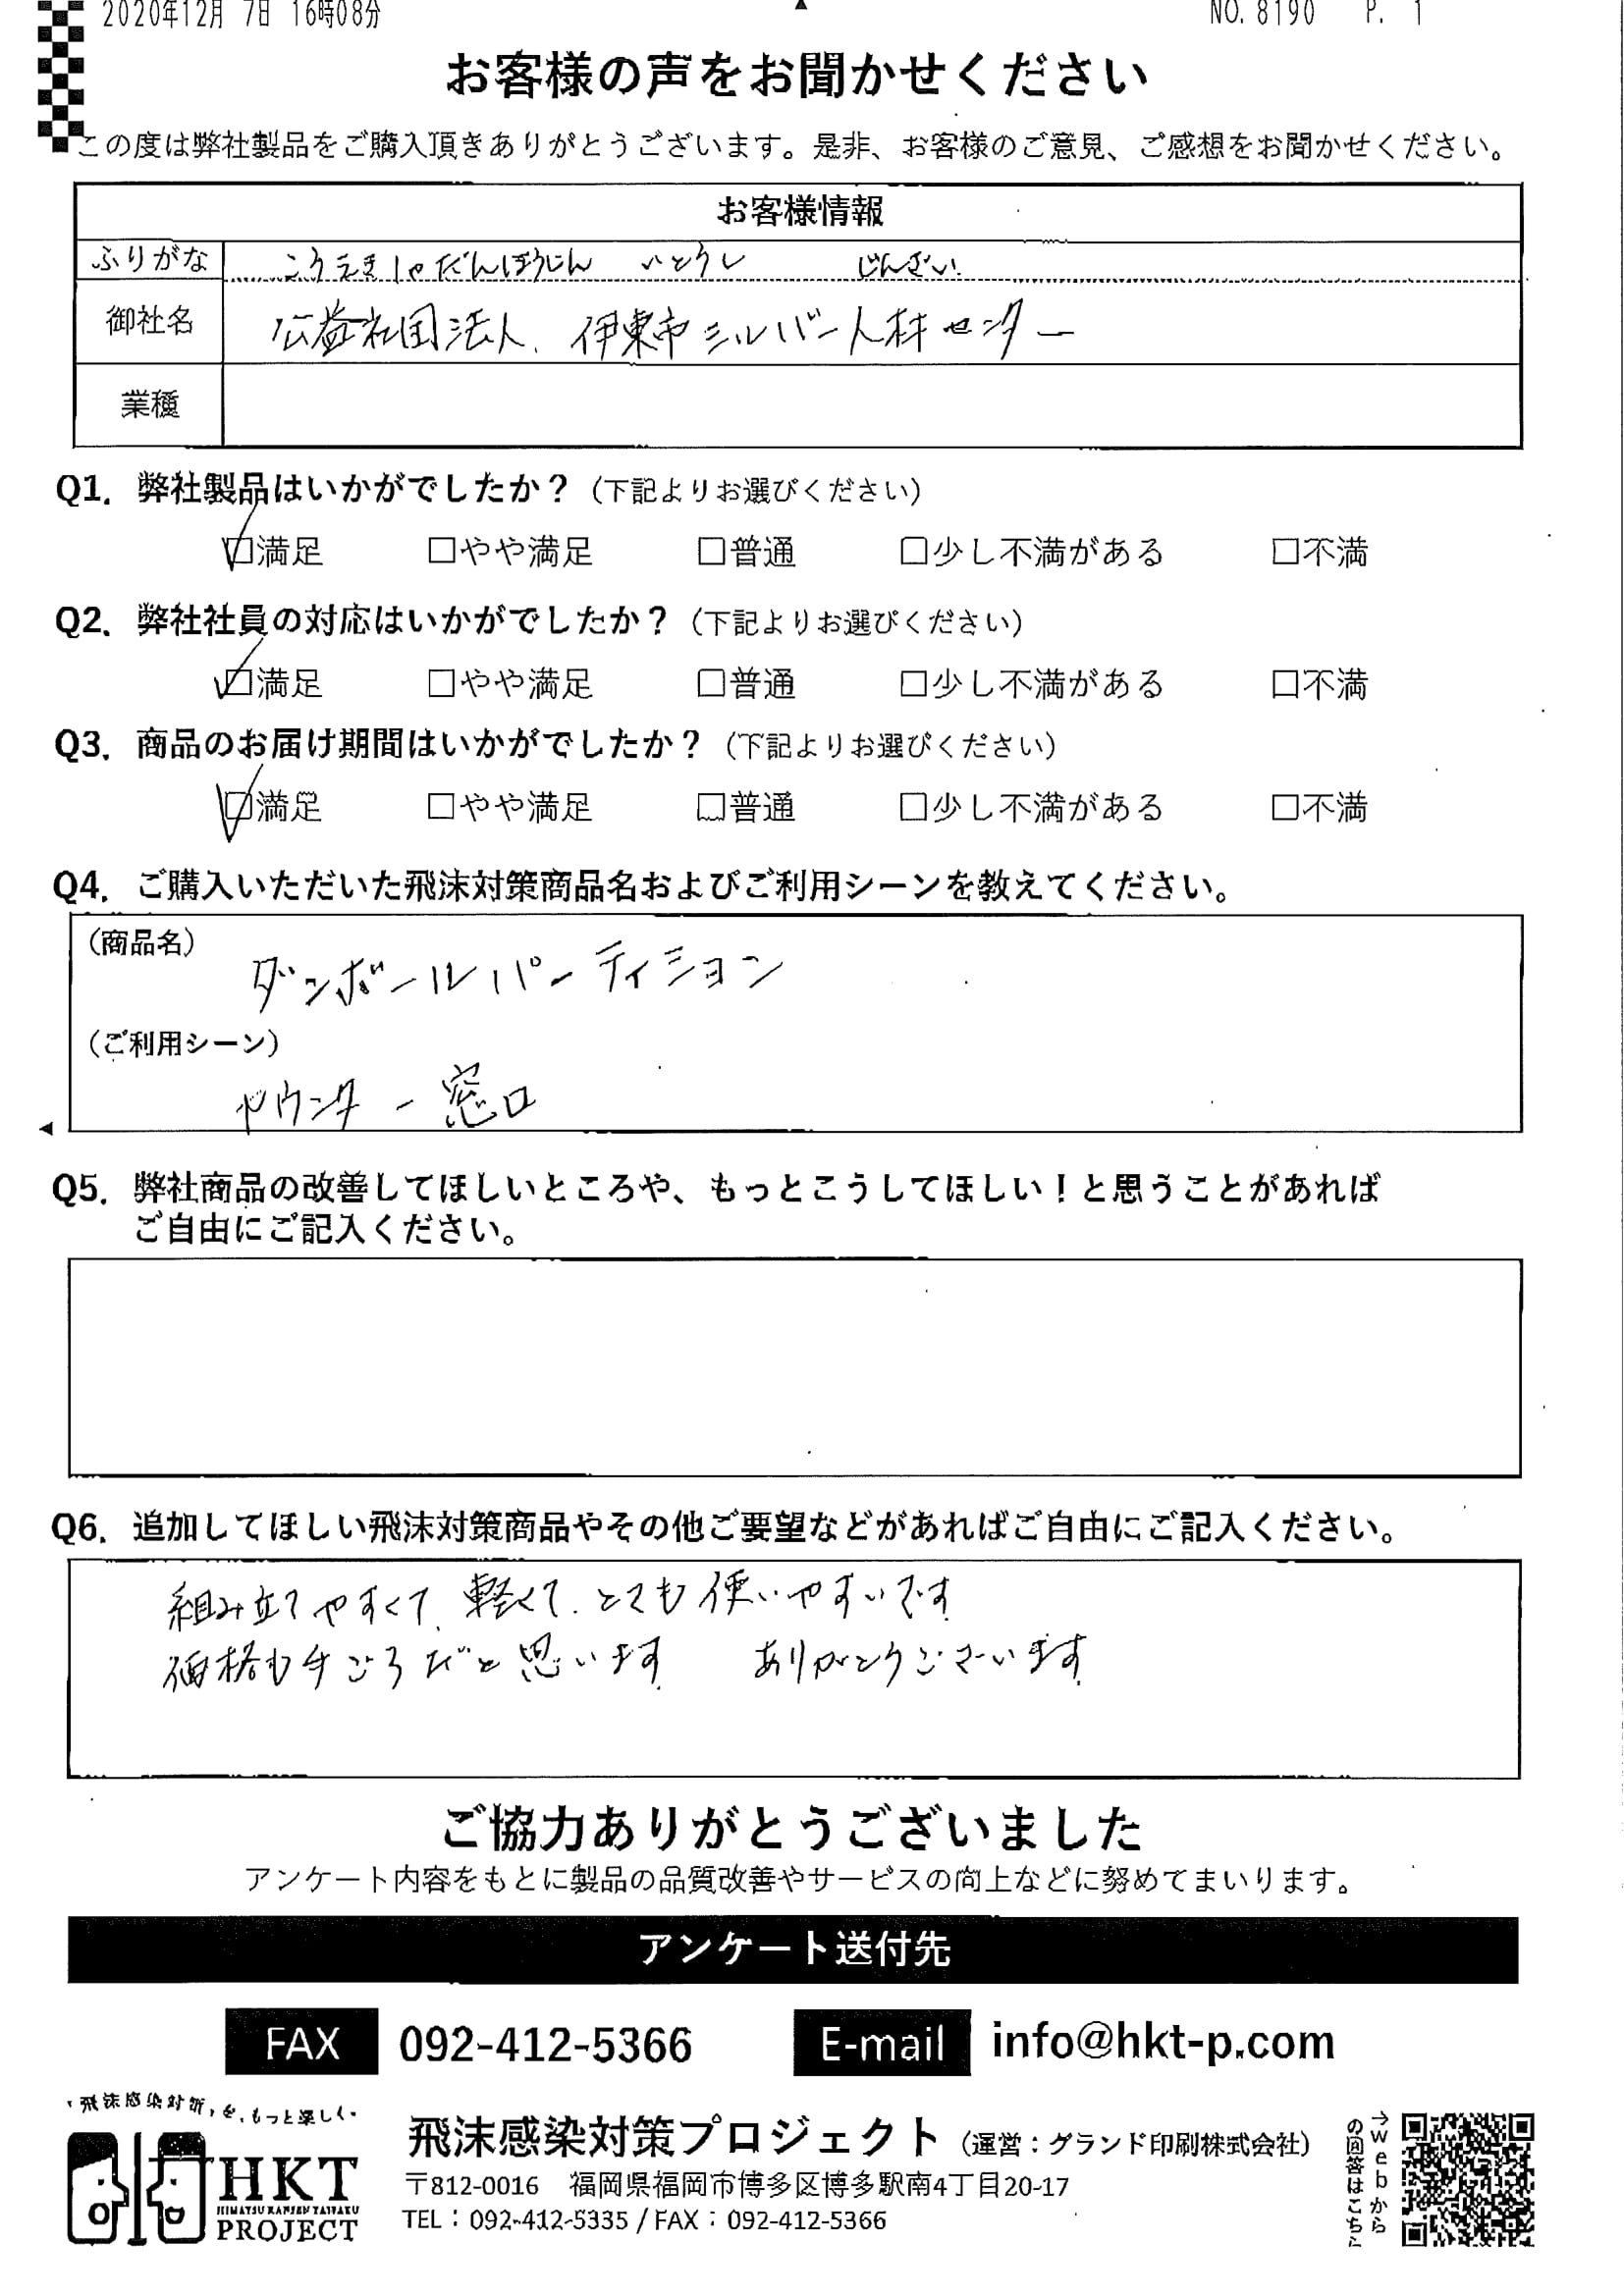 2020年12月 7日 16時08分 NO. 8190 P. 1
お客様の声をお聞かせください
この度は弊社製品をご購入頂きありがとうございます。是非、お客様のご意見、ご感想をお聞かせください。
お客様情報
ふりがな こうえきしゃだんほうじん いとうし じんざい
御社名 公益社団法人、伊東市シルバー人材センター
業種
Q1. 弊社製品はいかがでしたか？（下記よりお選びください）
☑満足 □やや満足 □普通 □少し不満がある □不満
Q2. 弊社社員の対応はいかがでしたか？（下記よりお選びください）
☑満足 □やや満足 □普通 □少し不満がある □不満
Q3. 商品のお届け期間はいかがでしたか？（下記よりお選びください）
☑満足 □やや満足 □普通 □少し不満がある □不満
Q4. ご購入いただいた飛沫対策商品名およびご利用シーンを教えてください。
（商品名）
ダンボールパーティション
（ご利用シーン）
カウンター窓口
Q5. 弊社商品の改善してほしいところや、もっとこうしてほしい！と思うことがあれば
ご自由にご記入ください。
Q6. 追加してほしい飛沫対策商品やその他ご要望などがあればご自由にご記入ください。
組み立てやすくて、軽くて、とても使いやすいです。
価格も手ごろだと思います。 ありがとうございます。
ご協力ありがとうございました
アンケート内容をもとに製品の品質改善やサービスの向上などに努めてまいります。
アンケート送付先
FAX 092-412-5366 E-mail info@hkt-p.com
"飛沫感染対策"を、もっと楽しく。
HKT
HIMATSU KANSEN TAISAKU
PROJECT
飛沫感染対策プロジェクト（運営：グランド印刷株式会社）
〒812-0016 福岡県福岡市博多区博多駅南4丁目20-17
TEL：092-412-5335 / FAX：092-412-5366
→webから
の回答はこちら